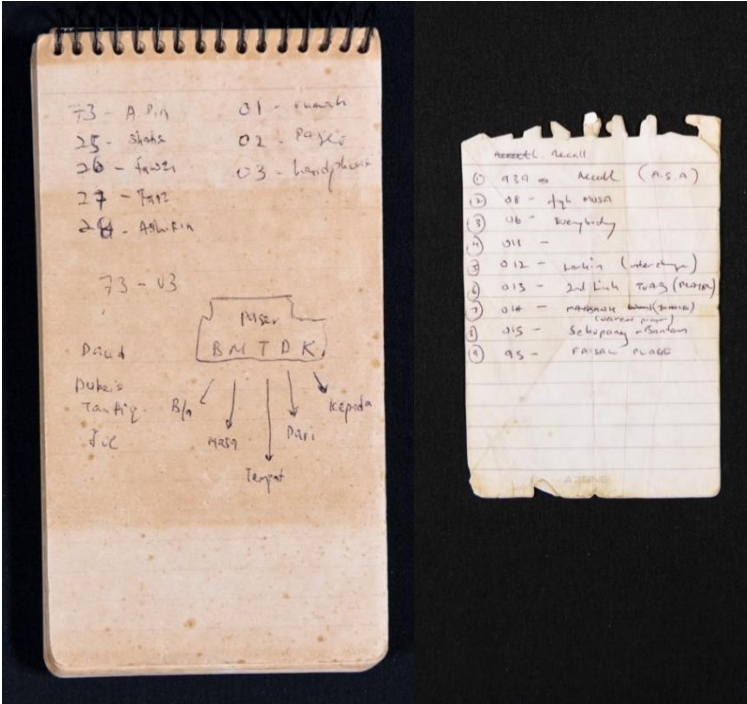 73 - A. Din
25 - Shahe
26 - fawzi
27 - Faiz
28 - Ashikin
01 - rumah
02 - Pager
03 - handphone
73 - 03
Daud
Tanfiq
B M T D K
B/a
Masa
Tempat
Dari
Kepada
Recall
① 939 - Recall (A.S.A)
② 08 - MUSA
③ 06 - Everybody
④ 011 -
⑤ 012 - Larkin (interchange)
⑥ 013 - 2nd Link TUAS (PLAZA)
⑦ 014 -
⑧ 015 - Sekupang - Bantam
⑨ 95 - FAISAL PLACE